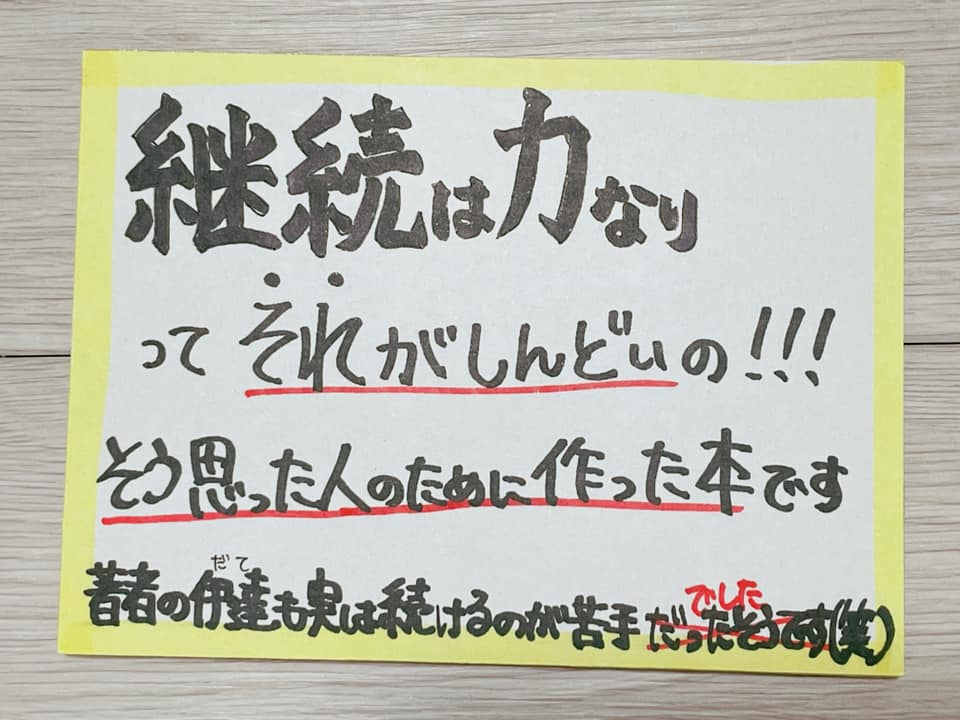 継続は力なり
ってそれがしんどいの!!!
そう思った人のために作った本です
だて
でした
著者の伊達も実は続けるのが苦手だったそうです(笑)